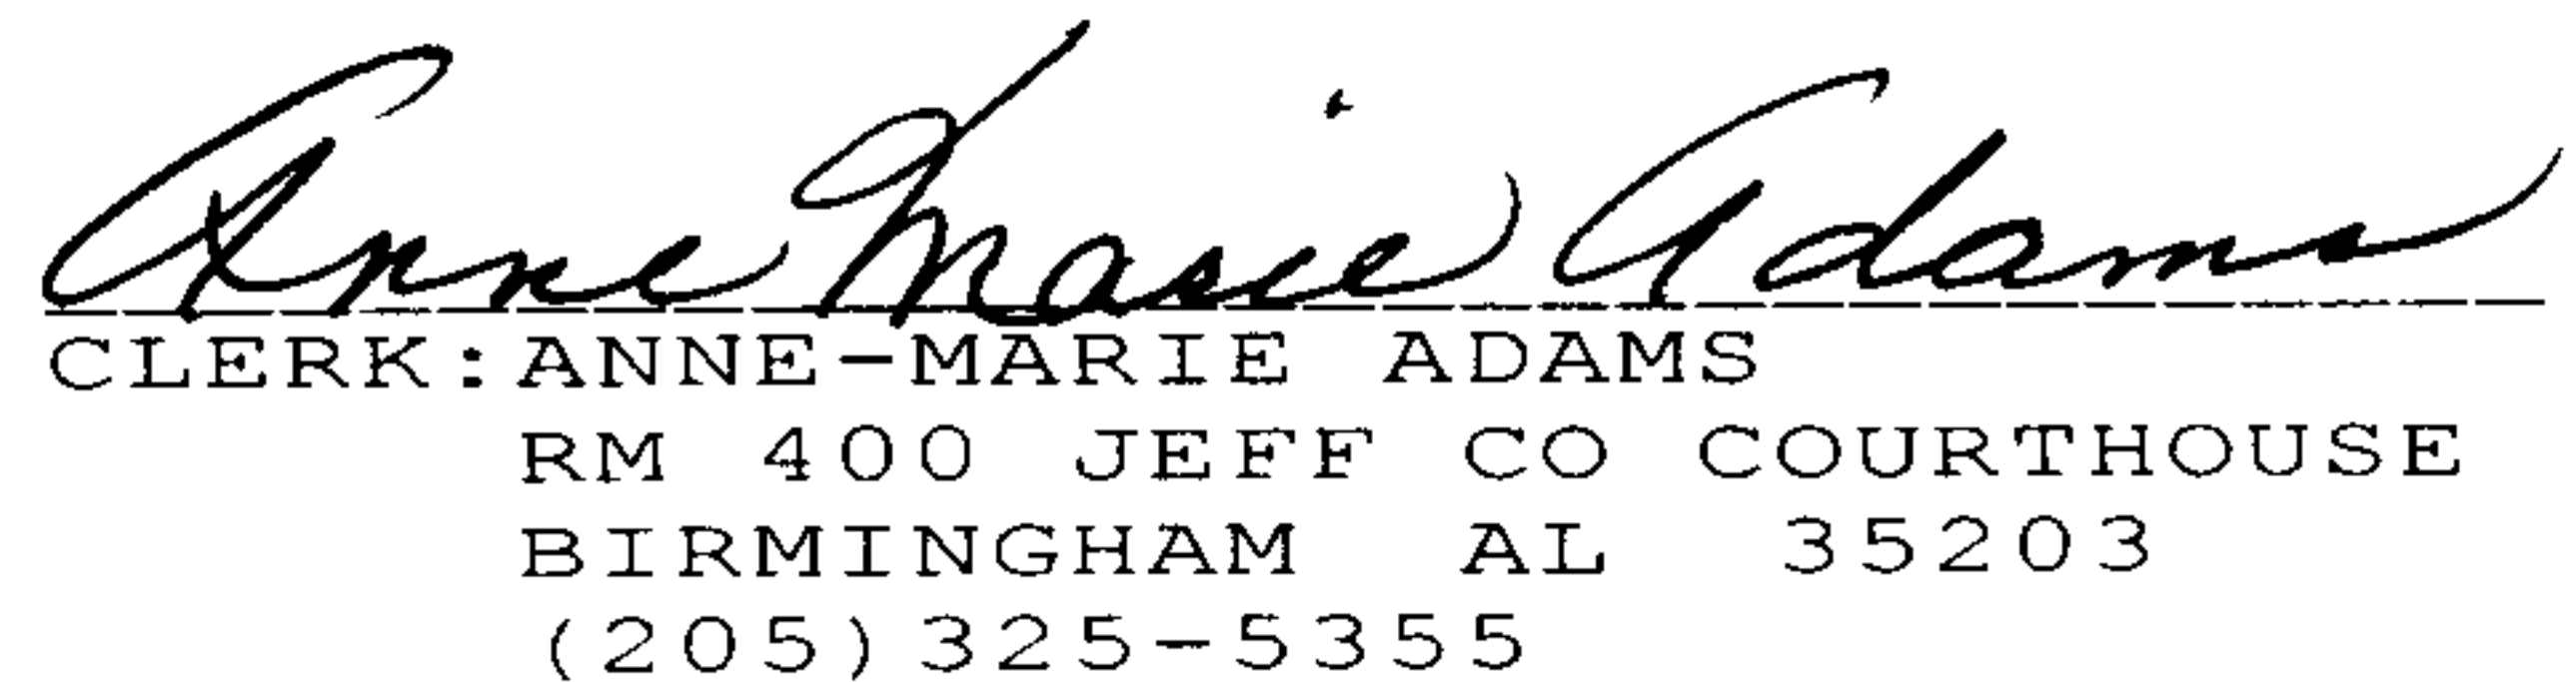 Anne Marie Adams
CLERK:ANNE-MARIE ADAMS
RM 400 JEFF CO COURTHOUSE
BIRMINGHAM AL 35203
(205)325-5355